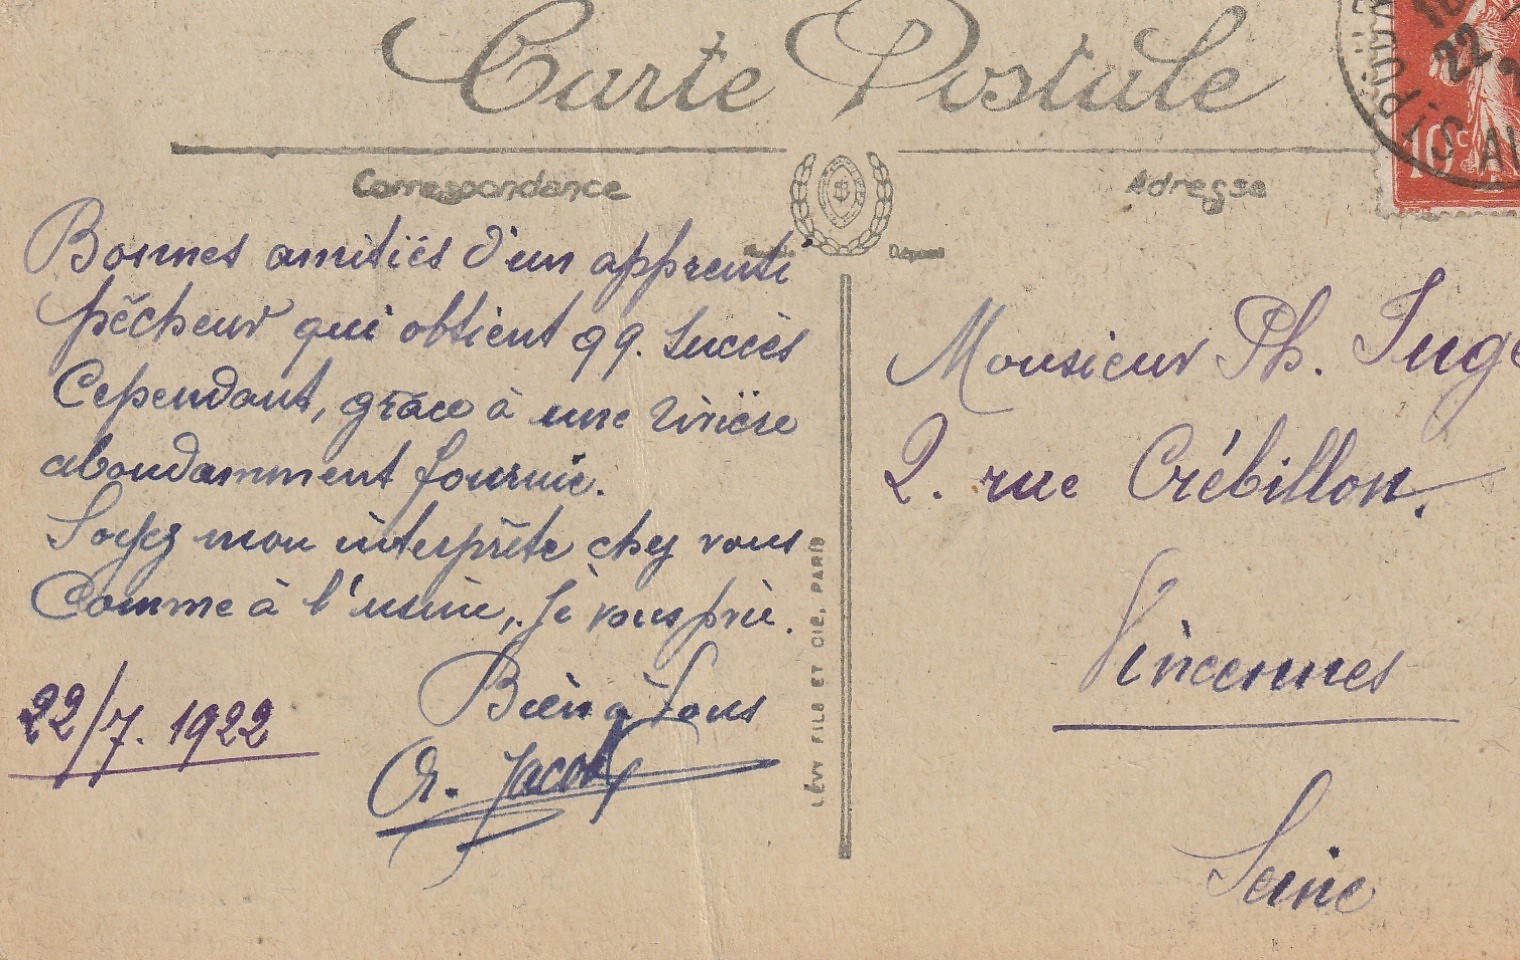 Carte Postale
Correspondance
Adresse
Bonnes amitiés d'un apprenti
pêcheur qui obtient qq. succès
Cependant, grâce à une rivière
abondamment fournie.
Soyez mon interprète chez vous
Comme à l'usine, je vous prie.
Bien à vous
22/7. 1922
Monsieur Ph. Juge
2. rue Crébillon.
Vincennes
Seine
LÉVY FILS ET CIE, PARIS
10c
22